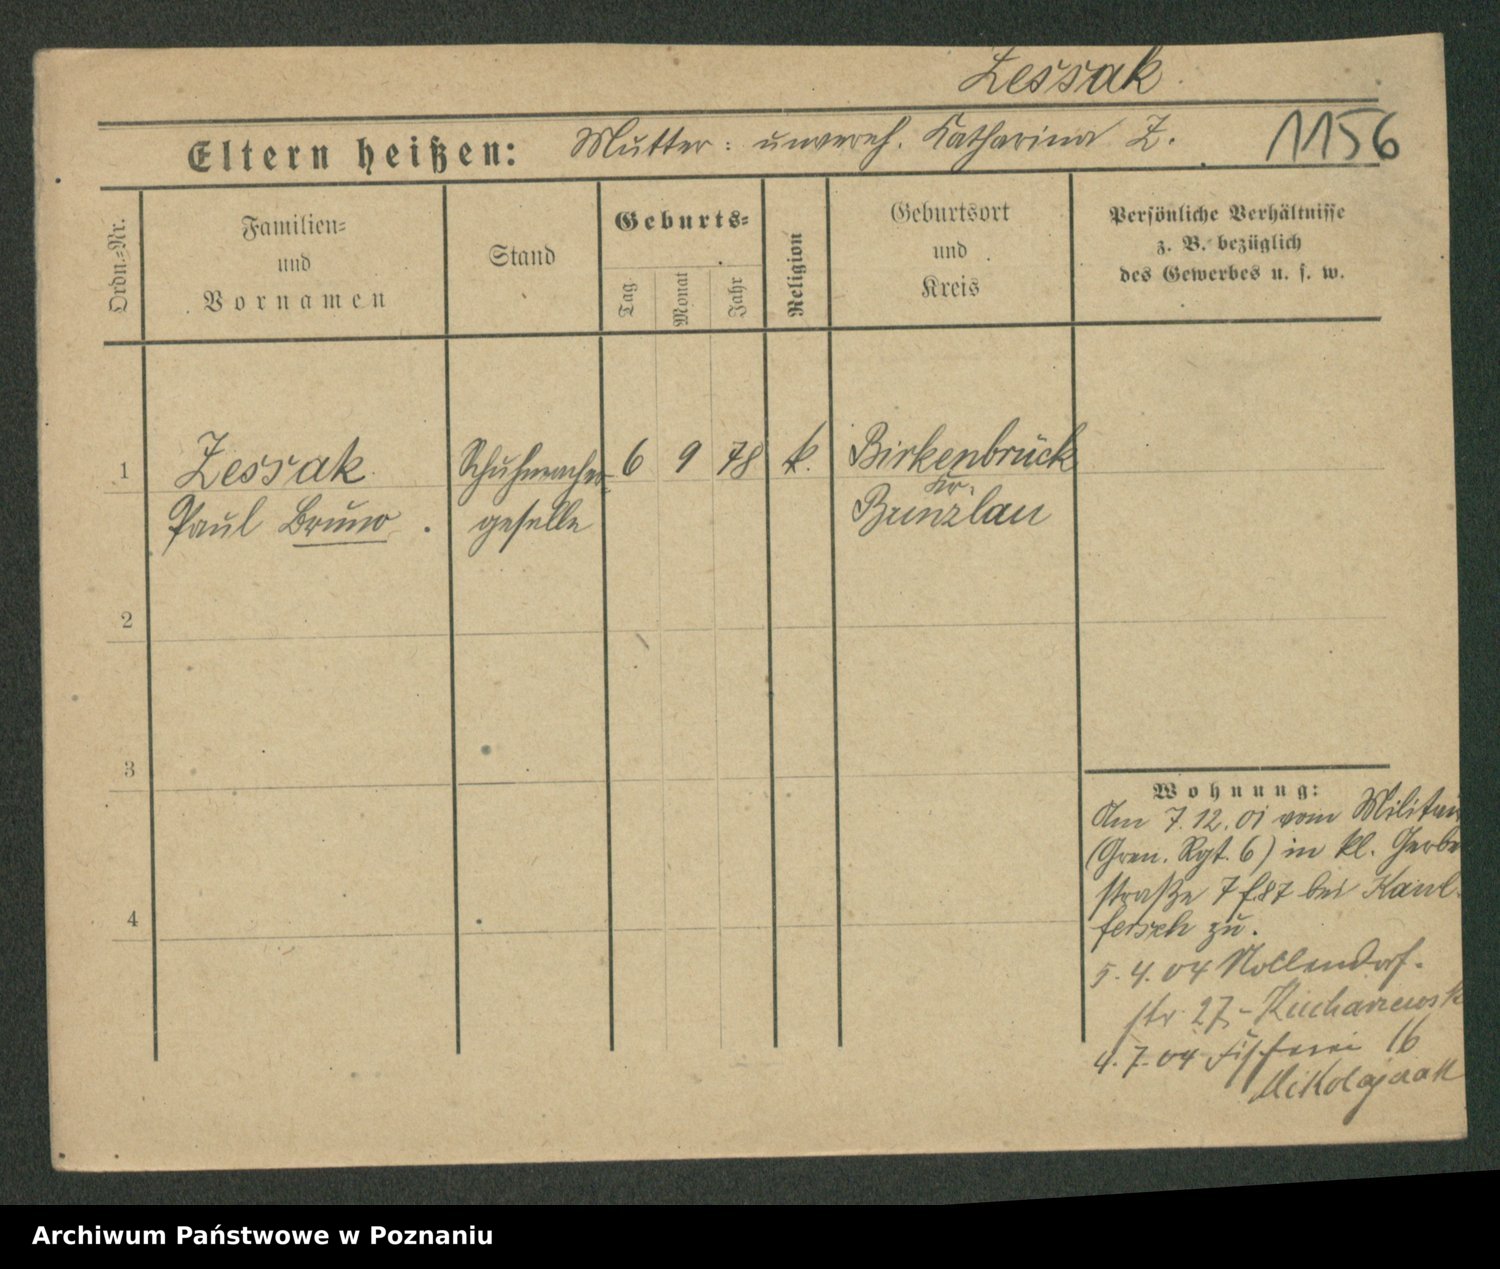 Zessak
Eltern heißen: Mutter: unvereh. Katharina Z. 1156
Ordn.-Nr.
Familien=
und
Vornamen
Stand
Geburts=
Tag
Monat
Jahr
Religion
Geburtsort
und
Kreis
Persönliche Verhältnisse
z. B. bezüglich
des Gewerbes u. s. w.
1 Zessak Schuhmacher= 6 9 78 k. Birkenbrück
Kr.
Paul Bruno. geselle Bunzlau
2
3
4
Wohnung:
Am 7.12.01 vom Militär
(Gren. Rgt. 6) in kl. Gerber
straße 7 bei Kaul-
fersch zu.
5.4.04 Nollendorf-
str 27 - Kucharzewsk
4.7.04 Fischerei 16
Mikolajczak
Archiwum Państwowe w Poznaniu